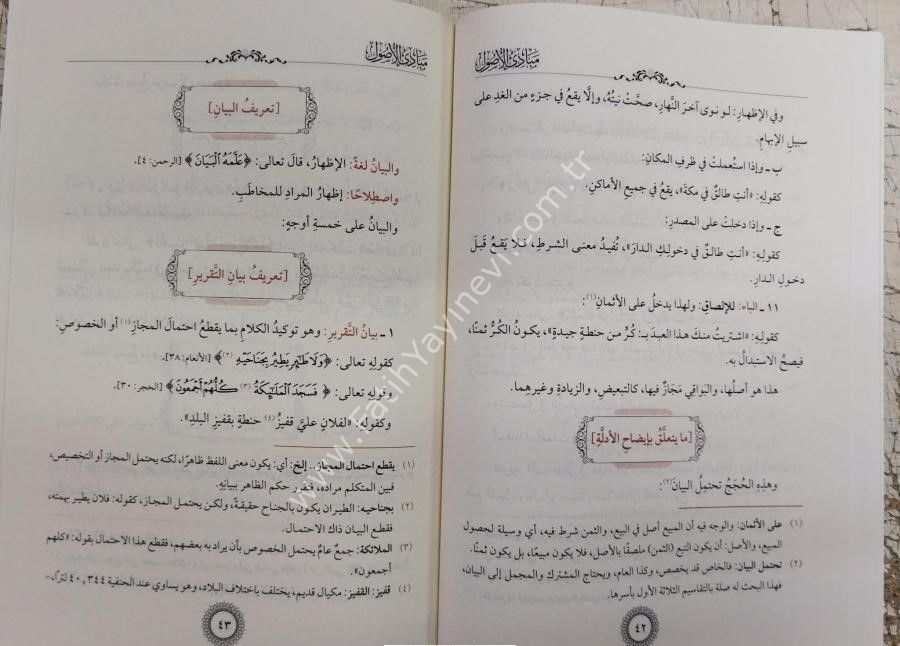 مبادئ الأصول
وفي الإظهارِ: لو نوى آخرَ النَّهارِ، صحَّتْ نيتُهُ، وإلَّا يقعُ في جزءٍ من الغدِ على
سبيلِ الإبهامِ.
ب ـ وإذا استُعملتْ في ظرفِ المكانِ:
كقولِهِ: «أنتِ طالقٌ في مكةَ»، يقعُ في جميعِ الأماكنِ.
ج ـ وإذا دخلتْ على المصدرِ:
كقولِهِ: «أنتِ طالقٌ في دخولِكِ الدارَ»، تُفيدُ معنى الشرطِ، فلا يَقعُ قَبلَ
دخولِ الدارِ.
١١ ـ الباء: للإلصاقِ: ولهذا يدخلُ على الأثمانِ(١):
كقولِهِ: «اشتريتُ منكَ هذا العبدَ بـ: كُرٍّ من حنطةٍ جيدةٍ»، يكونُ الكُرُّ ثمنًا،
فيصحُّ الاستبدالُ به.
هذا هو أصلُها، والبَواقي مَجَازٌ فيها، كالتبعيضِ، والزيادةِ وغيرِهما.
[ما يتعلَّقُ بإيضاحِ الأدلَّةِ]
وهذِهِ الحُجَجُ تحتمِلُ البيانَ(٢):
(١) على الأثمان: والوجه فيه أن المبيع أصل في البيع، والثمن شرط فيه، أي وسيلة لحصول
المبيع، والأصل: أن يكون التبع (الثمن) ملصقًا بالأصل، فلا يكون مبيعًا، بل يكون ثمنًا.
(٢) تحتمل البيان: فالخاص قد يخصص، وكذا العام، ويحتاج المشترك والمجمل إلى البيان،
فهذا البحث له صلة بالتقاسيم الثلاثة الأول بأسرها.
٤٢
مبادئ الأصول
[تعريفُ البيانِ]
والبيانُ لغةً: الإظهارُ، قالَ تعالى: ﴿عَلَّمَهُ ٱلْبَيَانَ﴾ [الرحمن: ٤].
واصطِلاحًا: إظهارُ المرادِ للمخاطَبِ.
والبيانُ على خمسةِ أوجهٍ:
[تعريفُ بيانِ التَّقريرِ]
١ ـ بيانُ التَّقريرِ: وهو توكيدُ الكلامِ بما يقطعُ احتمالَ المجازِ(١) أو الخصوصِ:
كقولِهِ تعالى: ﴿وَلَا طَٰٓئِرٍ يَطِيرُ بِجَنَاحَيْهِ(٢)﴾ [الأنعام: ٣٨].
وقولِهِ تعالى: ﴿فَسَجَدَ ٱلْمَلَٰٓئِكَةُ(٣) كُلُّهُمْ أَجْمَعُونَ﴾ [الحجر: ٣٠].
وكقولِهِ: «لفلانٍ عليَّ قفيزُ(٤) حنطةٍ بقفيزِ البلدِ».
(١) يقطع احتمال المجاز.. إلخ: أي: يكون معنى اللفظ ظاهرًا، لكنه يحتمل المجاز أو التخصيص،
فبين المتكلم مراده، فتقرر حكم الظاهر ببيانه.
(٢) بجناحيه: الطيران يكون بالجناح حقيقة، ولكن يحتمل المجاز، كقوله: فلان يطير بهمته،
فقطع البيان ذاك الاحتمال.
(٣) الملائكة: جمعٌ عامٌّ يحتمل الخصوص بأن يراد به بعضهم، فقطع هذا الاحتمال بقوله: «كلهم
أجمعون».
(٤) قفيز: القفيز: مكيال قديم، يختلف باختلاف البلاد، وهو يساوي عند الحنفية ٤٠,٣٤٤ لترًا،=
٤٣
www.FatihYayinevi.com.tr